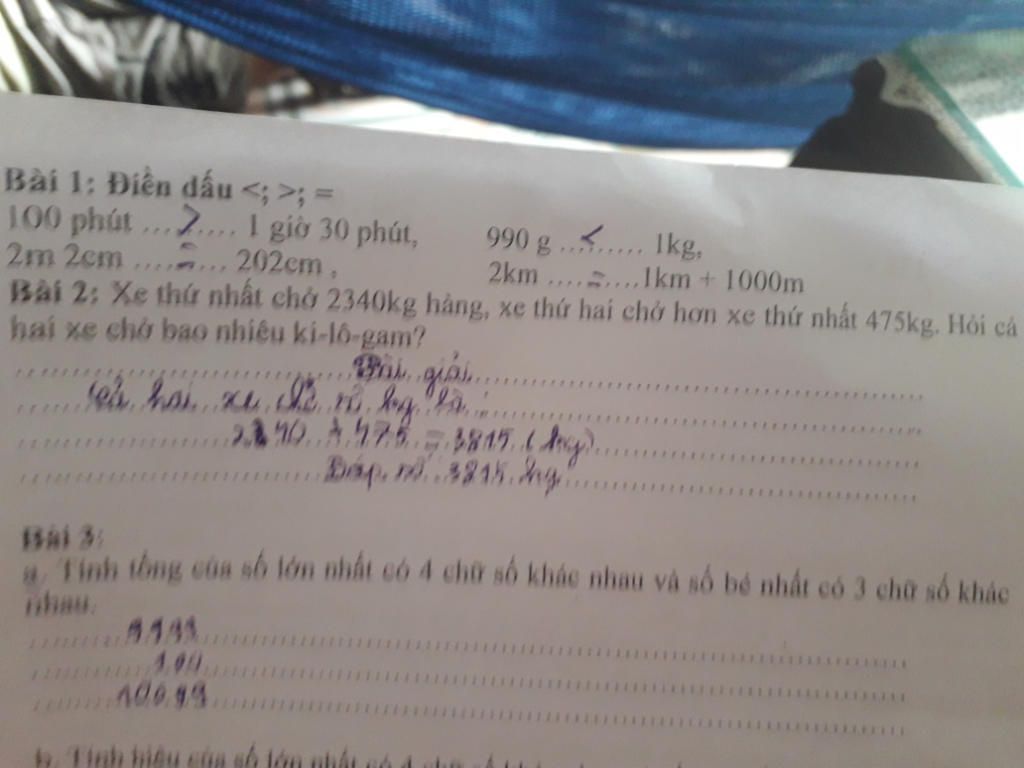 Bài 1: Điền dấu <; >; =
100 phút ....>.... 1 giờ 30 phút, 990 g ....<.... 1kg,
2m 2cm ....=.... 202cm, 2km ....=.... 1km + 1000m
Bài 2: Xe thứ nhất chở 2340kg hàng, xe thứ hai chở hơn xe thứ nhất 475kg. Hỏi cả
hai xe chở bao nhiêu ki-lô-gam?
Bài giải
Cả hai xe chở số kg là:
2340 + 475 = 3815 (kg)
Đáp số: 3815 kg
Bài 3:
a. Tính tổng của số lớn nhất có 4 chữ số khác nhau và số bé nhất có 3 chữ số khác
nhau.
9999
100
10099
b. Tính hiệu của số lớn nhất có 4 chữ số